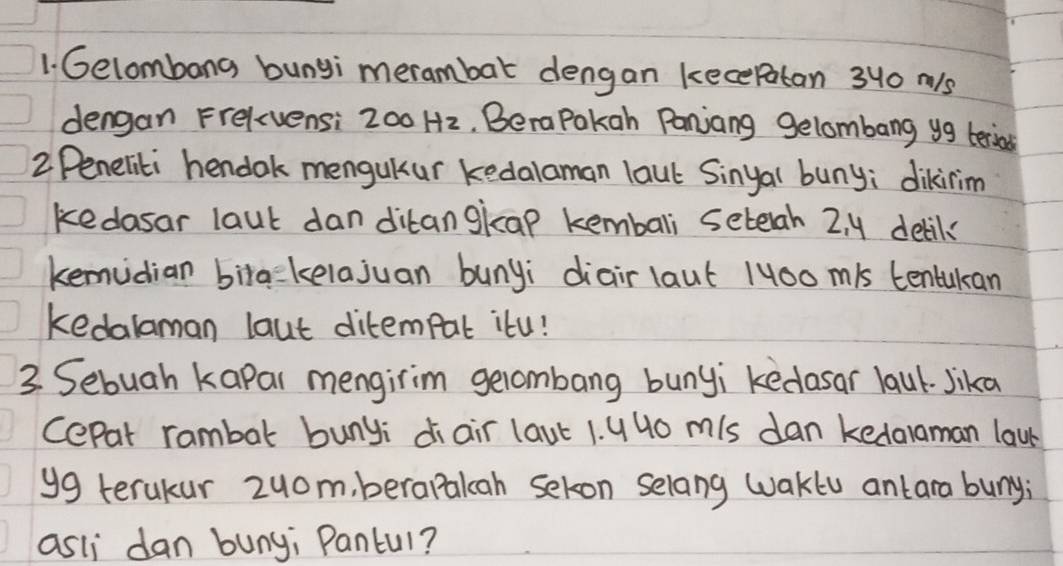 1. Gelombang bunyi merambat dengan kecepatan 340 m/s
dengan Frekuensi 200 Hz. Berapakah Panjang gelombang yg terjadi
2 Peneliti hendak mengukur kedalaman laut Sinyal bunyi dikirim
kedasar laut dan ditangkap kembali Setelah 2,4 detik
kemudian bila kelajuan bunyi diair laut 1400 m/s tentukan
kedalaman laut ditempat itu!
3. Sebuah Kapal mengirim gelombang bunyi kedasar laut. Jika
Cepat rambat bunyi di air laut 1.440 m/s dan kedalaman laut
yg terukur 240 m, berapakah Sekon Selang Waktu antara bunyi
asli dan bunyi Pantul?